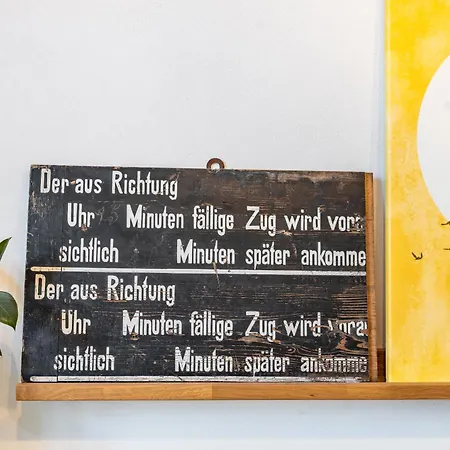 Der aus Richtung
Uhr 15 Minuten fällige Zug wird vora
sichtlich Minuten später ankomme
Der aus Richtung
Uhr Minuten fällige Zug wird vorau
sichtlich Minuten später ankomme